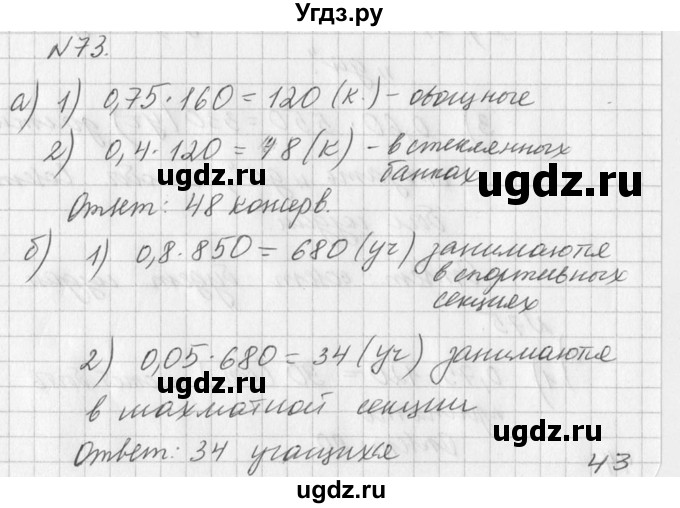 Угдз.ру
N73.
а) 1) 0,75·160=120 (к.) - овощные
2) 0,4·120=48 (к) - в стеклянных
банках
ugdz.ru
ugdz.ru
Ответ: 48 консерв.
б) 1) 0,8·850=680 (уч) занимаются
в спортивных
секциях
ugdz.ru
2) 0,05·680=34 (уч) занимаются
ugdz.ru
в шахматной секции
ugdz.ru
Ответ: 34 учащихся
43
ugdz.ru